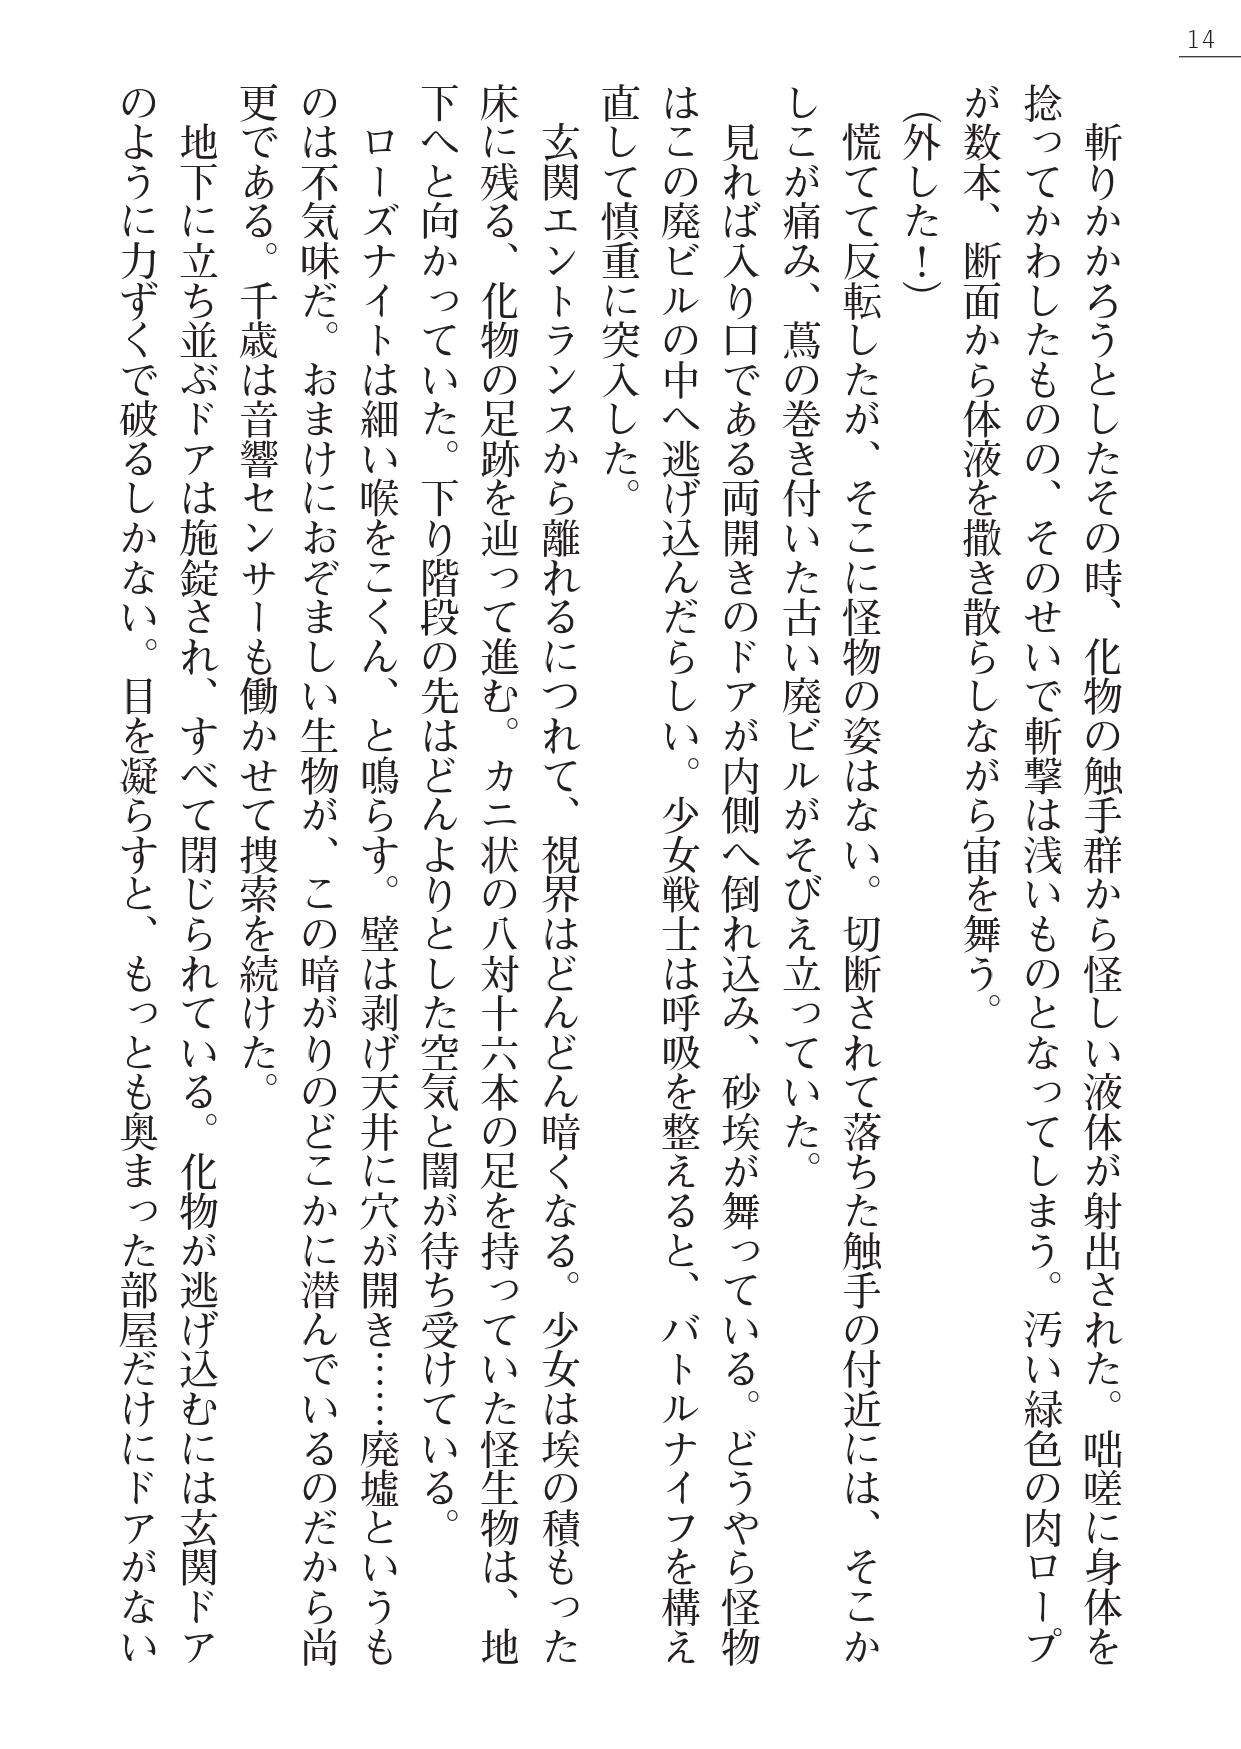 14
斬りかかろうとしたその時、化物の触手群から怪しい液体が射出された。咄嗟に身体を
捻ってかわしたものの、そのせいで斬撃は浅いものとなってしまう。汚い緑色の肉ロープ
が数本、断面から体液を撒き散らしながら宙を舞う。
(外した!)
慌てて反転したが、そこに怪物の姿はない。切断されて落ちた触手の付近には、そこか
しこが痛み、蔦の巻き付いた古い廃ビルがそびえ立っていた。
見れば入り口である両開きのドアが内側へ倒れ込み、砂埃が舞っている。どうやら怪物
はこの廃ビルの中へ逃げ込んだらしい。少女戦士は呼吸を整えると、バトルナイフを構え
直して慎重に突入した。
玄関エントランスから離れるにつれて、視界はどんどん暗くなる。少女は埃の積もった
床に残る、化物の足跡を辿って進む。カニ状の八対十六本の足を持っていた怪生物は、地
下へと向かっていた。下り階段の先はどんよりとした空気と闇が待ち受けている。
ローズナイトは細い喉をこくん、と鳴らす。壁は剥げ天井に穴が開き……廃墟というも
のは不気味だ。おまけにおぞましい生物が、この暗がりのどこかに潜んでいるのだから尚
更である。千歳は音響センサーも働かせて捜索を続けた。
地下に立ち並ぶドアは施錠され、すべて閉じられている。化物が逃げ込むには玄関ドア
のように力ずくで破るしかない。目を凝らすと、もっとも奥まった部屋だけにドアがない